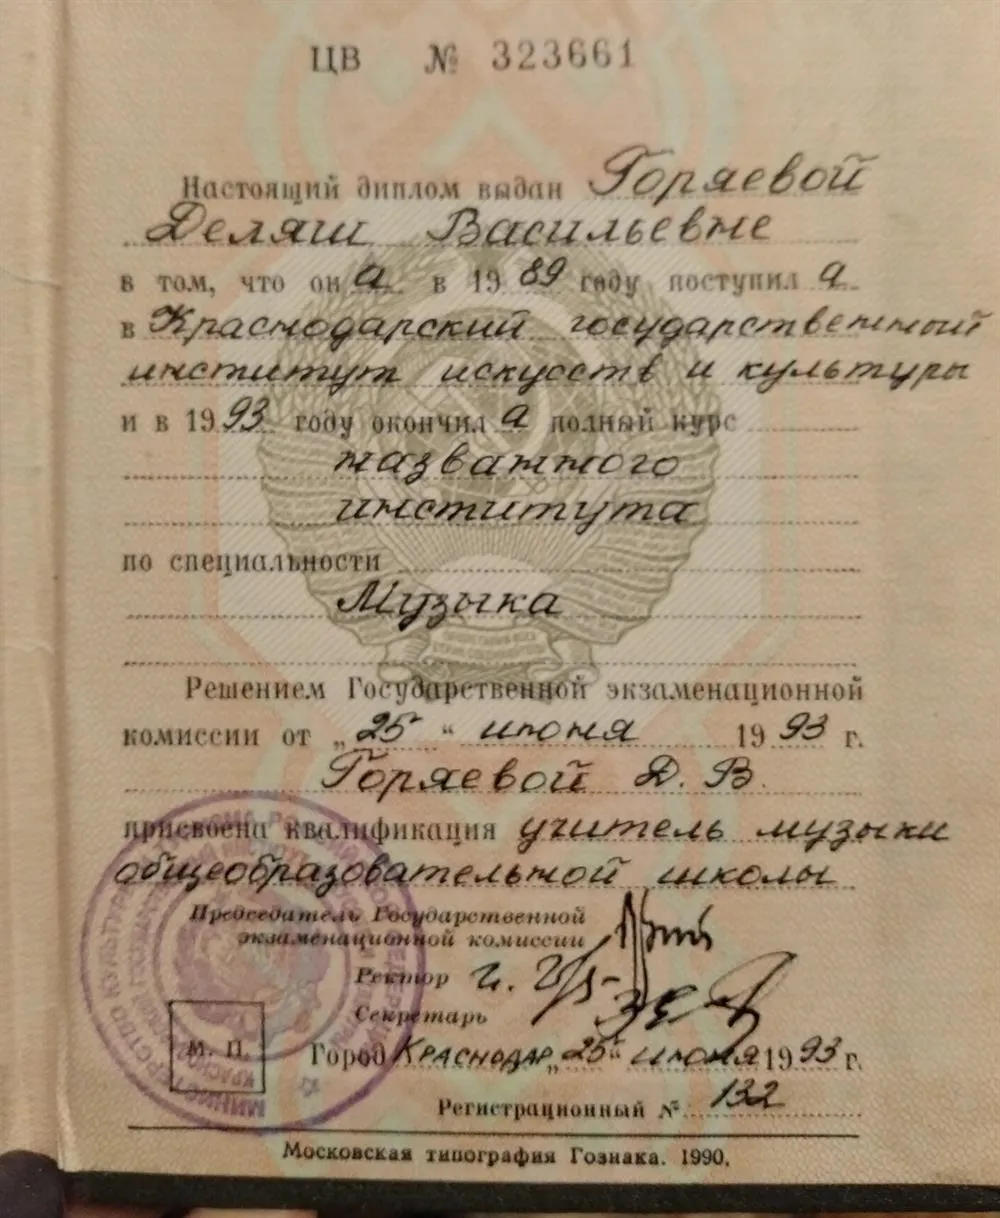 ЦВ № 323661
Настоящий диплом выдан Горяевой
Деляш Васильевне
в том, что он а в 1989 году поступил а
в Краснодарский государственный
институт искусств и культуры
и в 1993 году окончил а полный курс
названного
института
по специальности
Музыка
Решением Государственной экзаменационной
комиссии от „25“ июня 1993 г.
Горяевой Д. В.
присвоена квалификация учитель музыки
общеобразовательной школы
Председатель Государственной
экзаменационной комиссии
Ректор
Секретарь
М. П.
Город Краснодар „25“ июня 1993 г.
Регистрационный № 132
Московская типография Гознака. 1990.